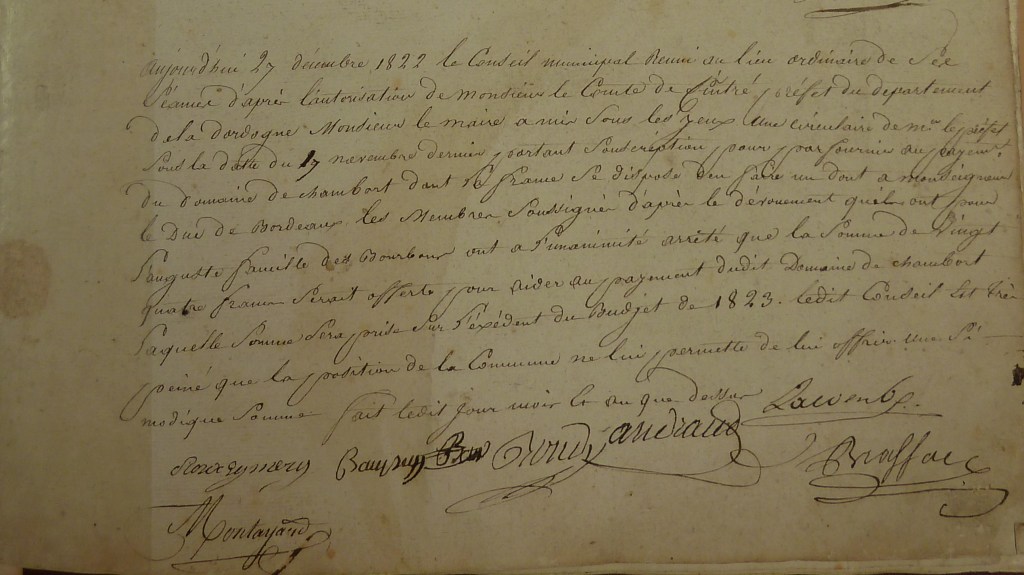 aujourd'hui 27 décembre 1822 le Conseil municipal Reuni au lieu ordinaire de Sés
Séances d'après l'autorisation de Monsieur le Comte de Cintré préfet du departement
de la dordogne Monsieur le maire a mis sous les yeux une circulaire de mr le préfet
Sous la date du 17 novembre dernier portant Souscription pour parfournir au payemt
du domaine de chambort dont la france se dispose d'en faire un dont a monseigneur
le Duc de Bordeaux. les Membres Soussignés d'après le dévouement qu'ils ont pour
l'auguste famille des Bourbons ont a l'unanimité arrêté que la Somme de Vingt
quatre francs Serait offerte pour aider au payement dudit Domaine de chambort
laquelle Somme Sera prise Sur l'exédent du Budjet de 1823. ledit Conseil Est très
peiné que la position de la Commune ne lui permette de lui offrir une Si
modique Somme fait ledit jour mois et an que dessus
andraud Brassac
Montayaud